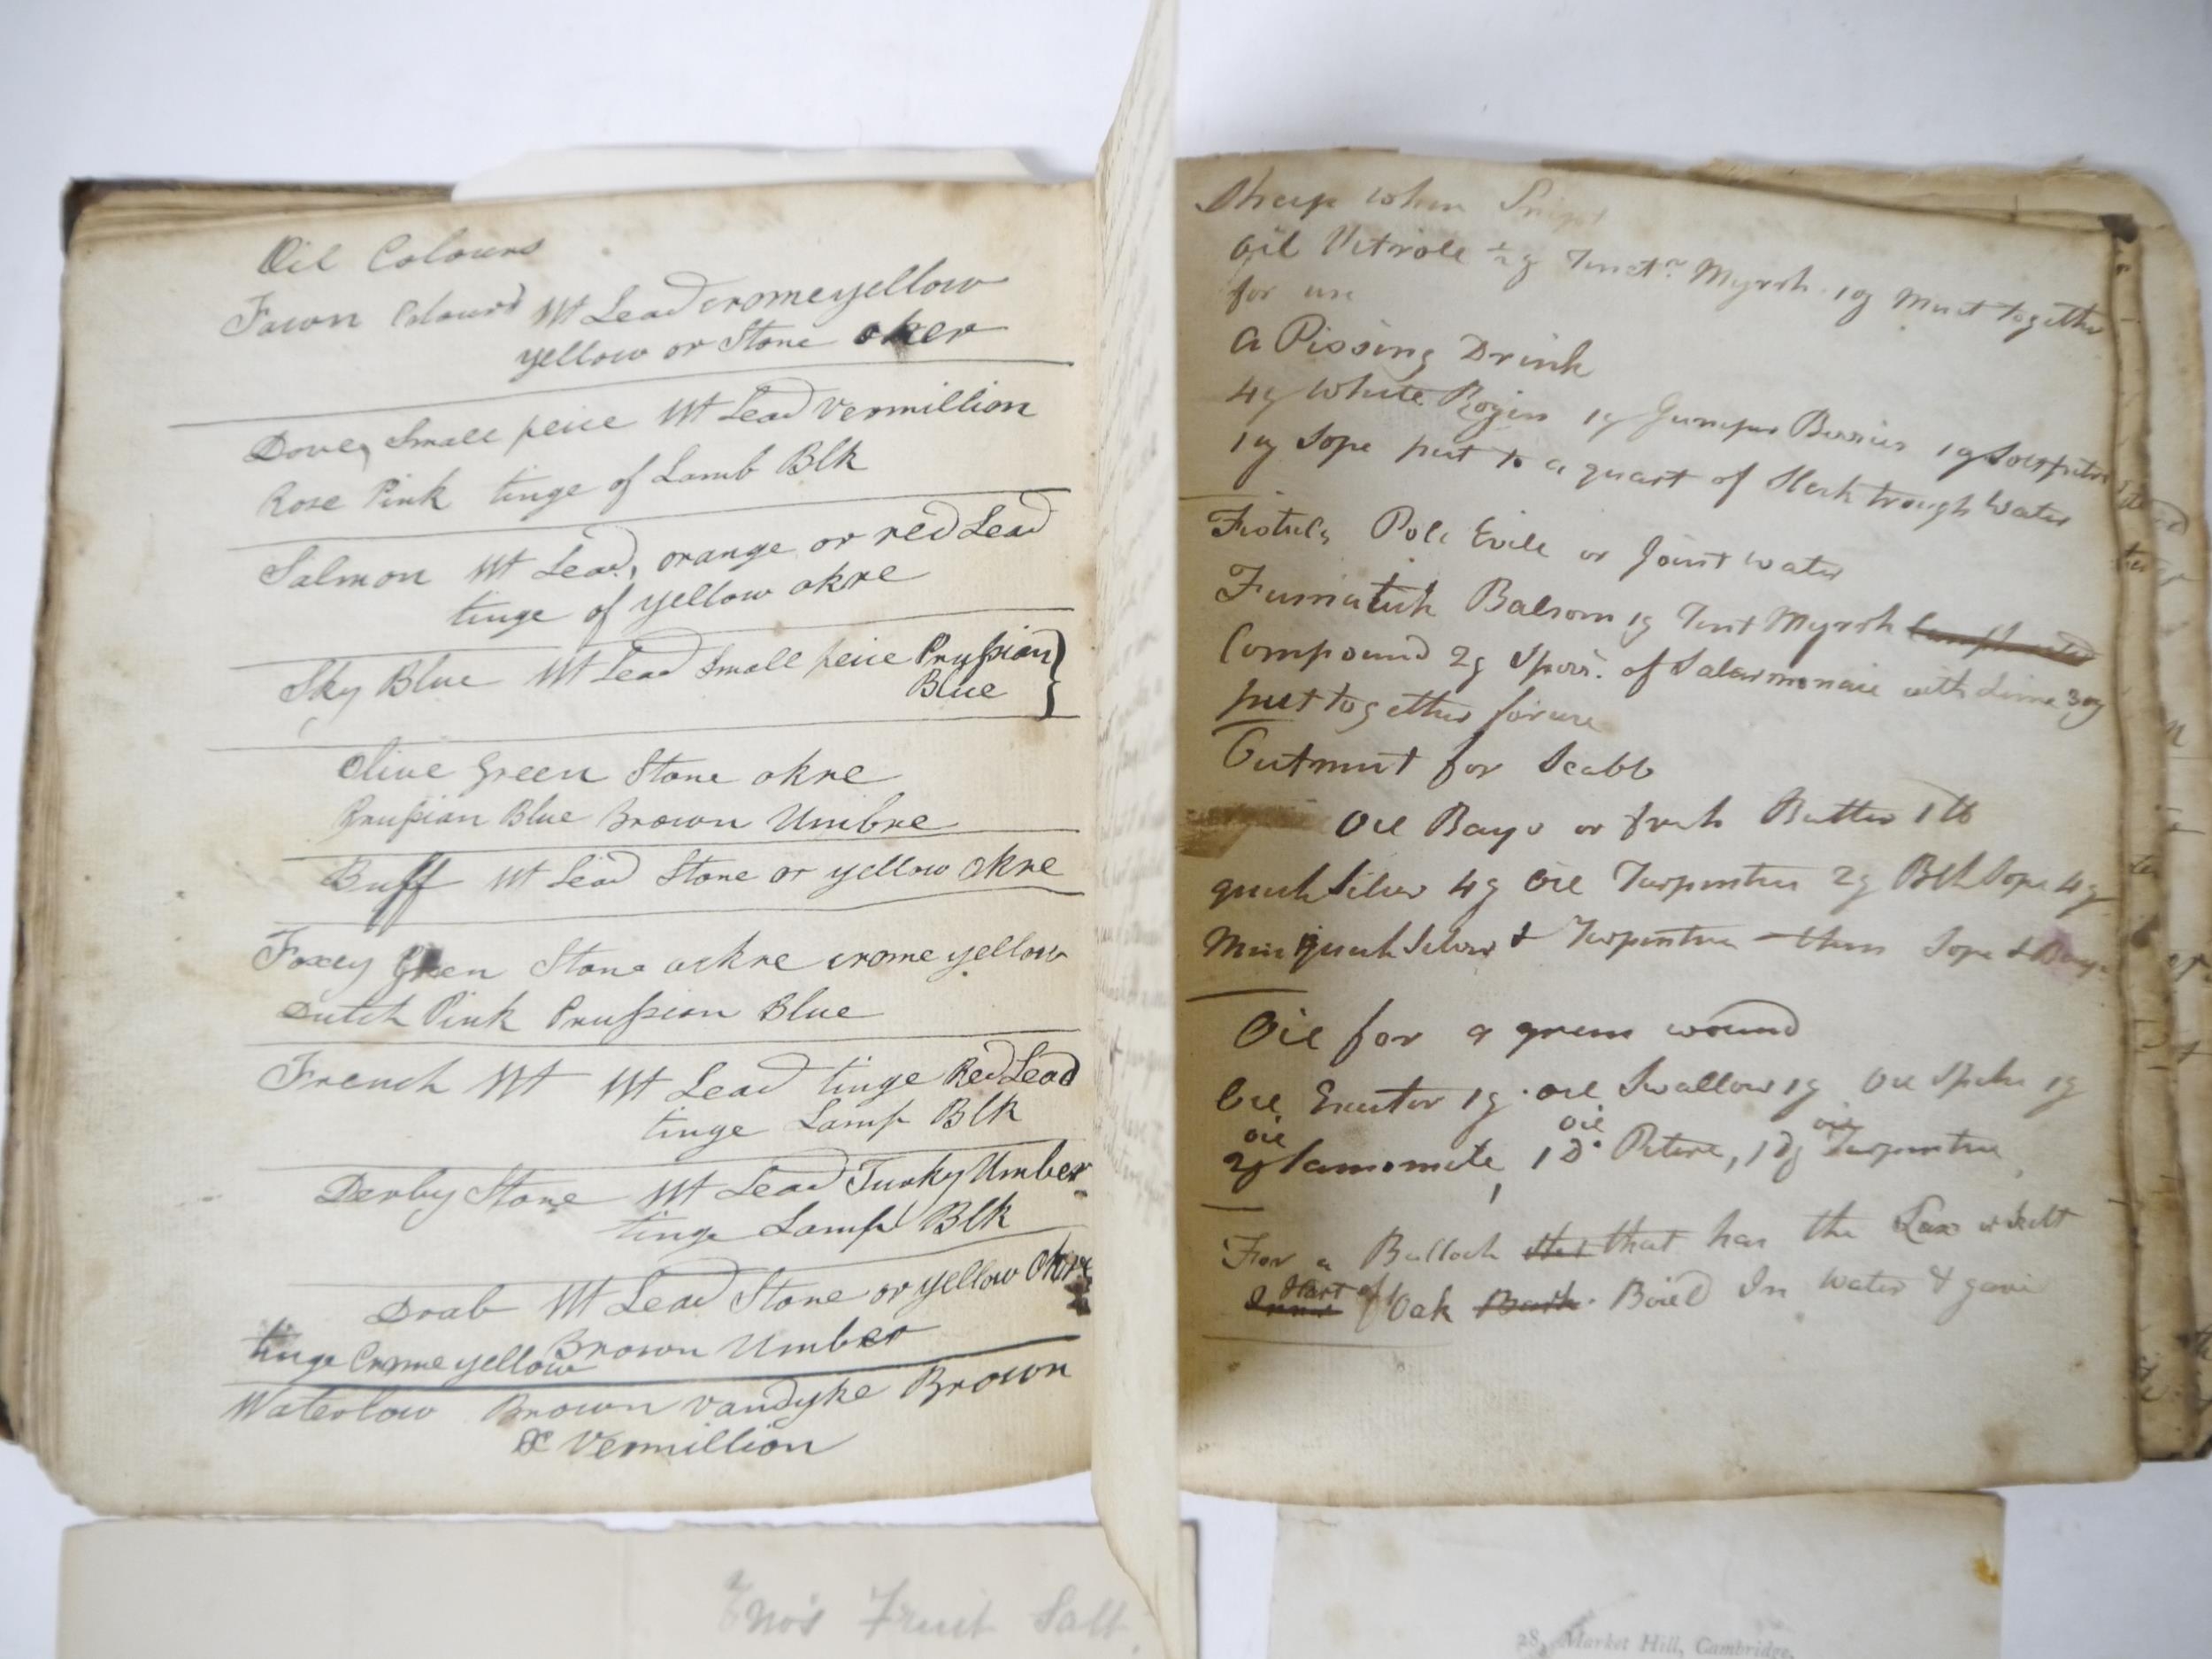 Oil Colours
Fawn Colourd Wt Lead cromeyellow
yellow or Stone oker
Dove, Small peice Wt Lead Vermillion
Rose Pink tinge of Lamb Blk
Salmon Wt Lead, orange or red Lead
tinge of yellow okre
Sky Blue Wt Lead Small peice Prussian
Blue
Olive Green Stone okre
Prussian Blue Brown Umbre
Buff Wt Lead Stone or yellow okre
Foxey Green Stone ockre crome yellow
Dutch Pink Prussian Blue
French Wt Wt Lead tinge Red Lead
tinge Lamp Blk
Derby Stone Wt Lead Turky Umber
tinge Lamp Blk
Drab Wt Lead Stone or yellow Okre
tinge Crome yellow Brown Umber
Waterlow Brown Vandyke Brown
& Vermillion
Eno's Fruit Salt.
Sheep when
Oil Vitriole ½ Tinctr Myrrh 1 together
for use
a Pissing Drink
4 White Rozin 1 Juniper Berries 1
1 Sope put to a quart of Slack trough Water
Fistula Pole Evile or Joint water
Balsom 1 Tint Myrrh
Compound 2 of with Lime 3
put together for use
Ointment for Scabb
Oil Bays or fresh Butter 1 lb
quick Silver 4 Oil Turpentine 2 Blk Sope 4
Mix quick Silver & Turpentine then Sope & Bays
Oil for a green wound
Oil Exeter 1 oil Swallow 1 Oil Spike 1
oil oil oil
2 Camomile, 1 Do Petire, 1 Turpentine
For a Bullock that has the Lax
Hart of Oak Bark Boiled In Water & gave
28, Market Hill, Cambridge.